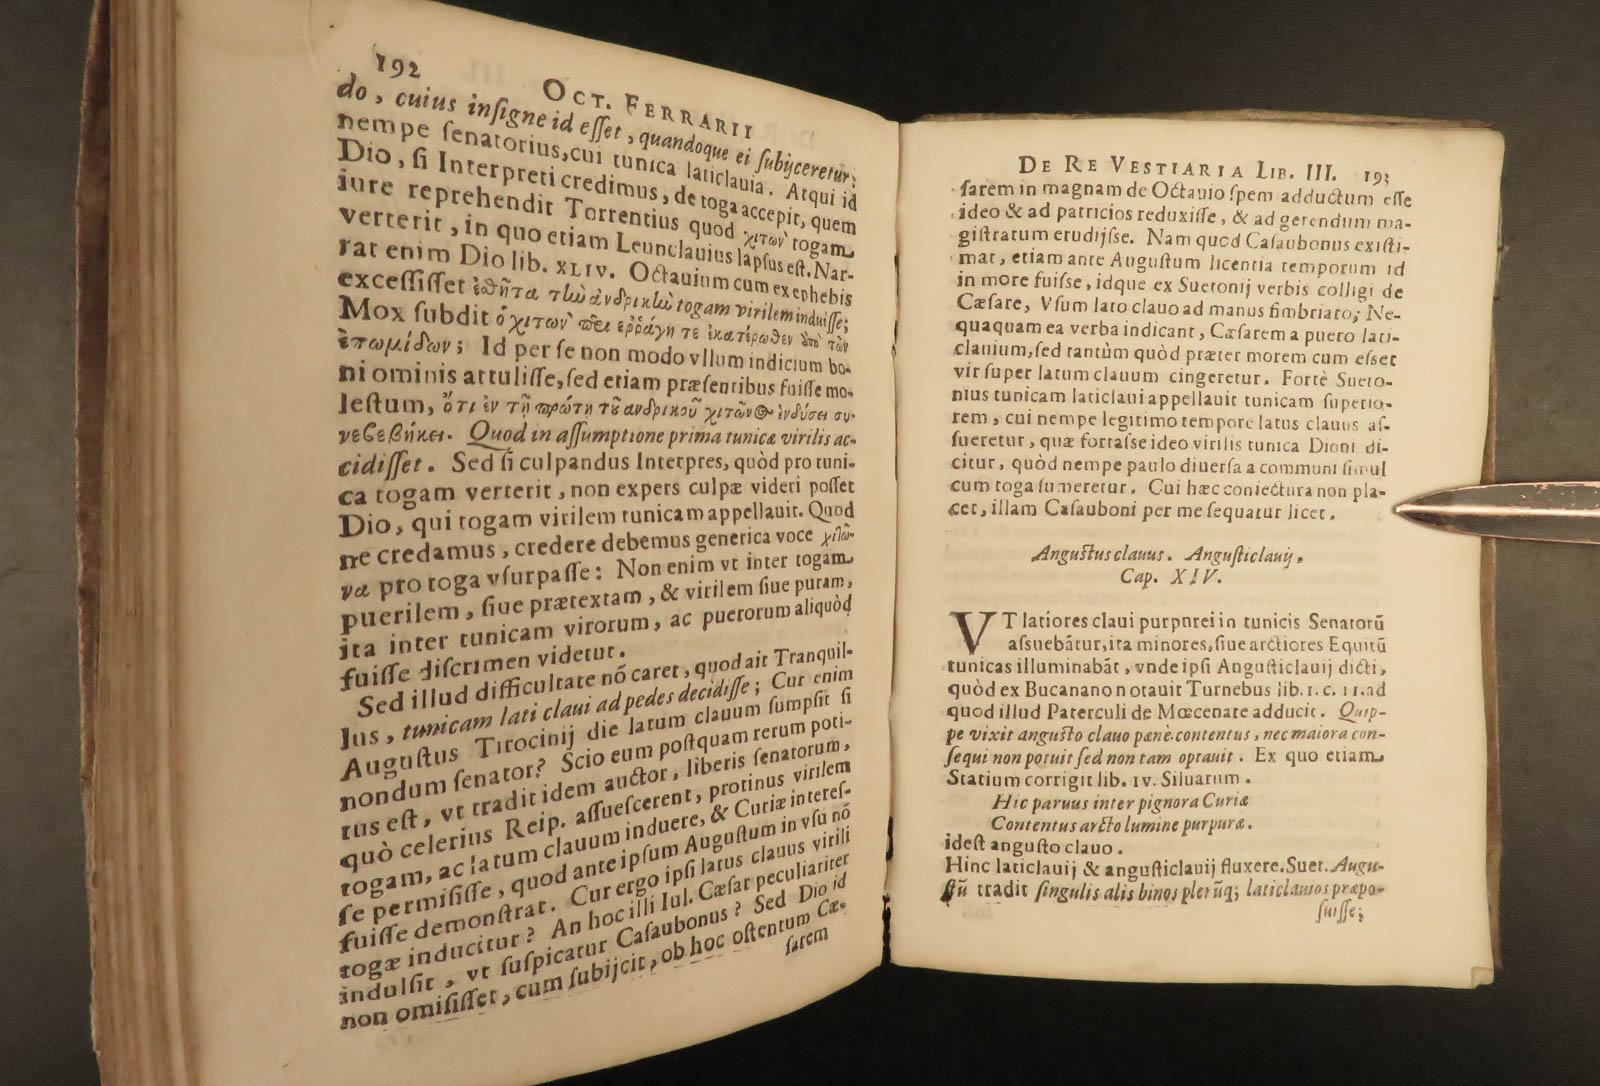 192 OCT. FERRARII
do, cuius inſigne id eſſet, quandoque ei ſubijceretur;
nempe ſenatorius, cui tunica laticlauia. Atqui id
Dio, ſi Interpreti credimus, de toga accepit, quem
iure reprehendit Torrentius quod χιτὼν togam
verterit, in quo etiam Leunclauius lapſus eſt. Nar-
rat enim Dio lib. XLIV. Octauium cum ex ephebis
exceſſiſſet ἐσθῆτα τὴν ἀνδρικὴν togam virilem induiſſe;
Mox ſubdit ὁ χιτὼν περιερράγη τε ἑκατέρωθεν ἀπὸ τῶν
ἐπωμίδων; Id per ſe non modo vllum indicium bo-
ni ominis attuliſſe, ſed etiam præſentibus fuiſſe mo-
leſtum, ὅτι ἐν τῇ πρώτῃ τοῦ ἀνδρικοῦ χιτῶνος ἐνδύσει συ-
νεβεβήκει. Quod in aſſumptione prima tunicæ virilis ac-
cidiſſet. Sed ſi culpandus Interpres, quòd pro tuni-
ca togam verterit, non expers culpæ videri poſſet
Dio, qui togam virilem tunicam appellauit. Quod
ne credamus, credere debemus generica voce χιτῶ-
να pro toga vſurpaſſe: Non enim vt inter togam
puerilem, ſiue prætextam, & virilem ſiue puram,
ita inter tunicam virorum, ac puerorum aliquòd
fuiſſe diſcrimen videtur.
Sed illud difficultate nō caret, quod ait Tranquil-
lus, tunicam lati claui ad pedes decidiſſe; Cur enim
Auguſtus Tirocinij die latum clauum ſumpſit ſi
nondum ſenator? Scio eum poſtquam rerum poti-
tus eſt, vt tradit idem auctor, liberis ſenatorum,
quò celerius Reip. aſſueſcerent, protinus virilem
togam, ac latum clauum induere, & Curiæ intereſ-
ſe permiſiſſe, quod ante ipſum Auguſtum in vſu nō
fuiſſe demonſtrat. Cur ergo ipſi latus clauus virili
togæ inducitur? An hoc illi Iul. Cæſar peculiariter
indulſit, vt ſuſpicatur Caſaubonus? Sed Dio id
non omiſiſſet, cum ſubijcit, ob hoc oſtentum Cæ-
ſarem
DE RE VESTIARIA LIB. III. 193
ſarem in magnam de Octauio ſpem adductum eſſe
ideo & ad patricios reduxiſſe, & ad gerendum ma-
giſtratum erudijſse. Nam quod Caſaubonus exiſti-
mat, etiam ante Auguſtum licentia temporum id
in more fuiſse, idque ex Suetonij verbis colligi de
Cæſare, Vſum lato clauo ad manus fimbriato; Ne-
quaquam ea verba indicant, Cæſarem a puero lati-
clauium, ſed tantùm quòd præter morem cum eſset
vir ſuper latum clauum cingeretur. Fortè Sueto-
nius tunicam laticlaui appellauit tunicam ſuperio-
rem, cui nempe legitimo tempore latus clauus aſ-
ſueretur, quæ fortaſse ideo virilis tunica Dioni di-
citur, quòd nempe paulo diuerſa a communi ſimul
cum toga ſumeretur. Cui hæc coniectura non pla-
cet, illam Caſauboni per me ſequatur licet.
Anguſtus clauus. Anguſticlauij.
Cap. XIV.
VT latiores claui purpurei in tunicis Senatorū
aſsuebātur, ita minores, ſiue arctiores Equitū
tunicas illuminabāt, vnde ipſi Anguſticlauij dicti,
quòd ex Bucanano notauit Turnebus lib. 1. c. 11. ad
quod illud Paterculi de Mœcenate adducit. Quip-
pe vixit anguſto clauo pænè contentus, nec maiora con-
ſequi non potuit ſed non tam optauit. Ex quo etiam
Statium corrigit lib. IV. Siluarum.
Hic paruus inter pignora Curiæ
Contentus arcto lumine purpuræ.
ideſt anguſto clauo.
Hinc laticlauij & anguſticlauij fluxere. Suet. Augu-
ſtū tradit ſingulis alis binos plerūq; laticlauios præpo-
ſuiſſe;